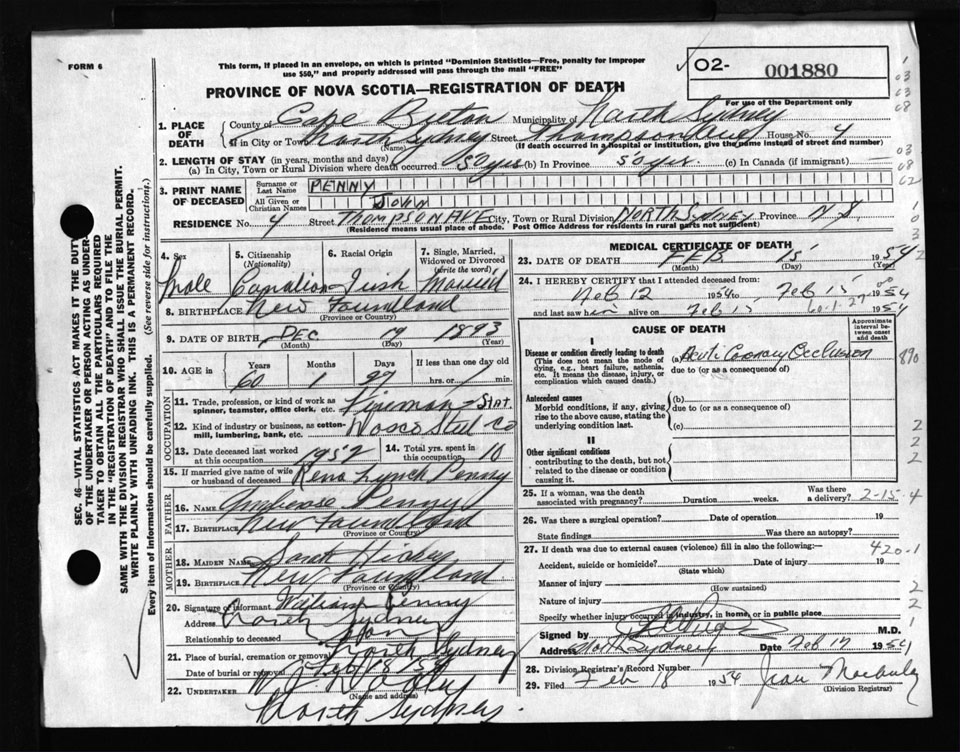 FORM 6
This form, if placed in an envelope, on which is printed "Dominion Statistics—Free, penalty for improper
use $50," and properly addressed will pass through the mail "FREE"
O2- 001880
For use of the Department only
PROVINCE OF NOVA SCOTIA—REGISTRATION OF DEATH
1. PLACE OF DEATH
County of Cape Breton Municipality of North Sydney
City or Town North Sydney Street Thompson Ave House No. 4
(Name) (If death occurred in a hospital or institution, give the name instead of street and number)
2. LENGTH OF STAY (in years, months and days)
(a) In City, Town or Rural Division where death occurred 50 yrs (b) In Province 50 yrs. (c) In Canada (if immigrant) —
3. PRINT NAME OF DECEASED
Surname or Last Name PENNY
All Given or Christian Names JOHN
RESIDENCE No. 4 Street THOMPSON AVE City, Town or Rural Division NORTH SYDNEY Province N S.
(Residence means usual place of abode. Post Office Address for residents in rural parts not sufficient)
4. Sex
Male
5. Citizenship
(Nationality)
Canadian
6. Racial Origin
Irish
7. Single, Married,
Widowed or Divorced
(write the word)
Married
8. BIRTHPLACE New Foundland
(Province or Country)
9. DATE OF BIRTH Dec 19 1893
(Month) (Day) (Year)
10. AGE in
Years Months Days If less than one day old
60 1 27 hrs. or min.
OCCUPATION
11. Trade, profession, or kind of work as
spinner, teamster, office clerk, etc. Fireman - Stat.
12. Kind of industry or business, as cotton-
mill, lumbering, bank, etc. Dosco Steel Co
13. Date deceased last worked
at this occupation 1952
14. Total yrs. spent in
this occupation. 10
15. If married give name of wife
or husband of deceased Rena Lynch Penny
FATHER
16. NAME Ambrose Penny
17. BIRTHPLACE New Foundland
(Province or Country)
MOTHER
18. MAIDEN NAME Sarah Hickey
19. BIRTHPLACE New Foundland
(Province or Country)
20. Signature of informant William Penny
Address North Sydney
Relationship to deceased Son
21. Place of burial, cremation or removal North Sydney
Date of burial or removal Feb 18 1954
22. UNDERTAKER
(Name and address)
North Sydney.
MEDICAL CERTIFICATE OF DEATH
23. DATE OF DEATH FEB 15 1954
(Month) (Day) (Year)
24. I HEREBY CERTIFY that I attended deceased from:
Feb 12 1954 to Feb 15 1954
and last saw him alive on Feb 15 1954
60-1-27-00
CAUSE OF DEATH
Approximate
interval be-
tween onset
and death
I
Disease or condition directly leading to death
(This does not mean the mode of
dying, e.g., heart failure, asthenia,
etc. It means the disease, injury, or
complication which caused death.)
(a) Acute Coronary Occlusion
due to (or as a consequence of)
Antecedent causes
Morbid conditions, if any, giving
rise to the above cause, stating the
underlying condition last.
(b)
due to (or as a consequence of)
(c)
II
Other significant conditions
contributing to the death, but not
related to the disease or condition
causing it.
25. If a woman, was the death
associated with pregnancy? Duration weeks. Was there
a delivery? 2-15-4
26. Was there a surgical operation? Date of operation 19
State findings Was there an autopsy?
27. If death was due to external causes (violence) fill in also the following:— 420-1
Accident, suicide or homicide? Date of injury 19
(State which)
Manner of injury
(How sustained)
Nature of injury
Specify whether injury occurred in industry, in home, or in public place
Signed by M.D.
Address North Sydney Date Feb 17 1954
28. Division Registrar's Record Number
29. Filed Feb 18 1954 Jean
(Division Registrar)
SEC. 46—VITAL STATISTICS ACT MAKES IT THE DUTY
OF THE UNDERTAKER OR PERSON ACTING AS UNDER-
TAKER TO OBTAIN ALL THE PARTICULARS REQUIRED
IN THE "REGISTRATION OF DEATH" AND TO FILE THE
SAME WITH THE DIVISION REGISTRAR WHO SHALL ISSUE THE BURIAL PERMIT.
WRITE PLAINLY WITH UNFADING INK. THIS IS A PERMANENT RECORD.
Every item of information should be carefully supplied. (See reverse side for instructions.)